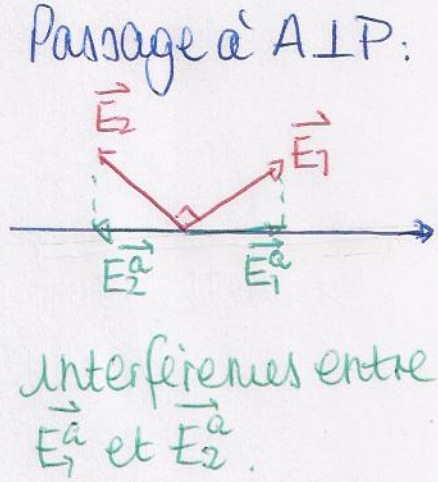 Passage à A⊥P:
E₂⃗
E₁⃗
E₂ᵃ⃗ E₁ᵃ⃗
interférences entre
E₁ᵃ⃗ et E₂ᵃ⃗.